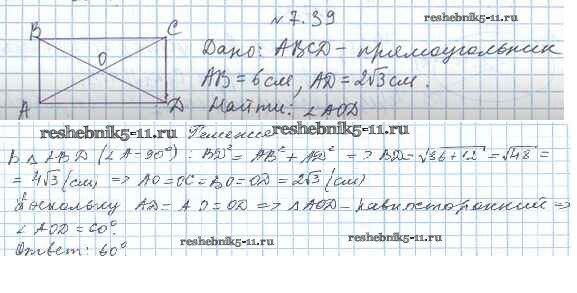 № 7.39
reshebnik5-11.ru
B
C
O
A
D
Дано: ABCD – прямоугольник
AB = 6 см, AD = 2√3 см.
Найти: ∠AOD
reshebnik5-11.ru
Решение
reshebnik5-11.ru
В △ ABD (∠A=90°): BD² = AB² + AD² => BD = √36+12 = √48 =
= 4√3 (см) => AO = OC = BO = OD = 2√3 (см)
Поскольку AD = AO = OD => △AOD – равносторонний =>
∠AOD = 60°.
reshebnik5-11.ru
reshebnik5-11.ru
Ответ: 60°